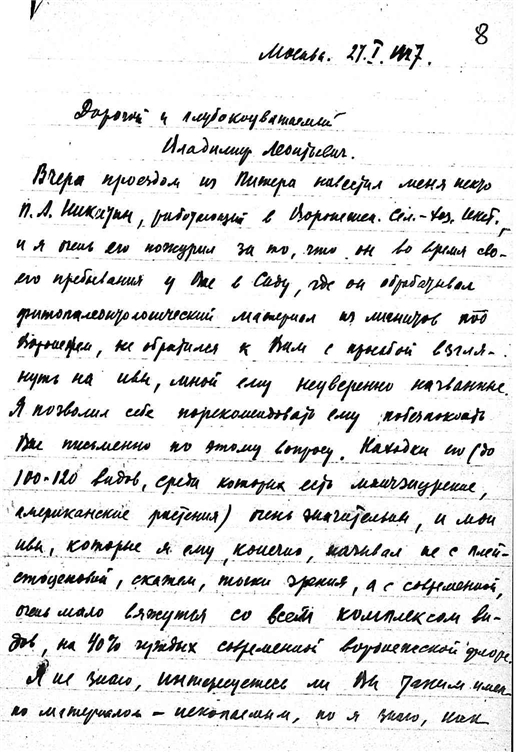 8
Москва. 27.I.1927.
Дорогой и глубокоуважаемый
Владимир Леонтьевич.
Вчера проездом из Питера навестил меня некто
П. А. Никитин, работающий в Воронежск. Сел.-хоз. Инст.,
и я очень его пожурил за то, что он во время сво-
его пребывания у Вас в Саду, где он обрабатывал
фитопалеонтологический материал из лигнитов под
Воронежем, не обратился к Вам с просьбой взгля-
нуть на ивы, мной ему неуверенно названные.
Я позволил себе порекомендовать ему побеспокоить
Вас письменно по этому вопросу. Находки его (до
100-120 видов, среди которых есть манчжурские,
американские растения) очень значительны, и мои
ивы, которые я ему, конечно, называл не с плей-
стоценовой, скажем, точки зрения, а с современной,
очень мало вяжутся со всем комплексом ви-
дов, на 40% чуждых современной воронежской флоре.
Я не знаю, интересуетесь ли Вы таким имен-
но материалом – ископаемым, но я знаю, как